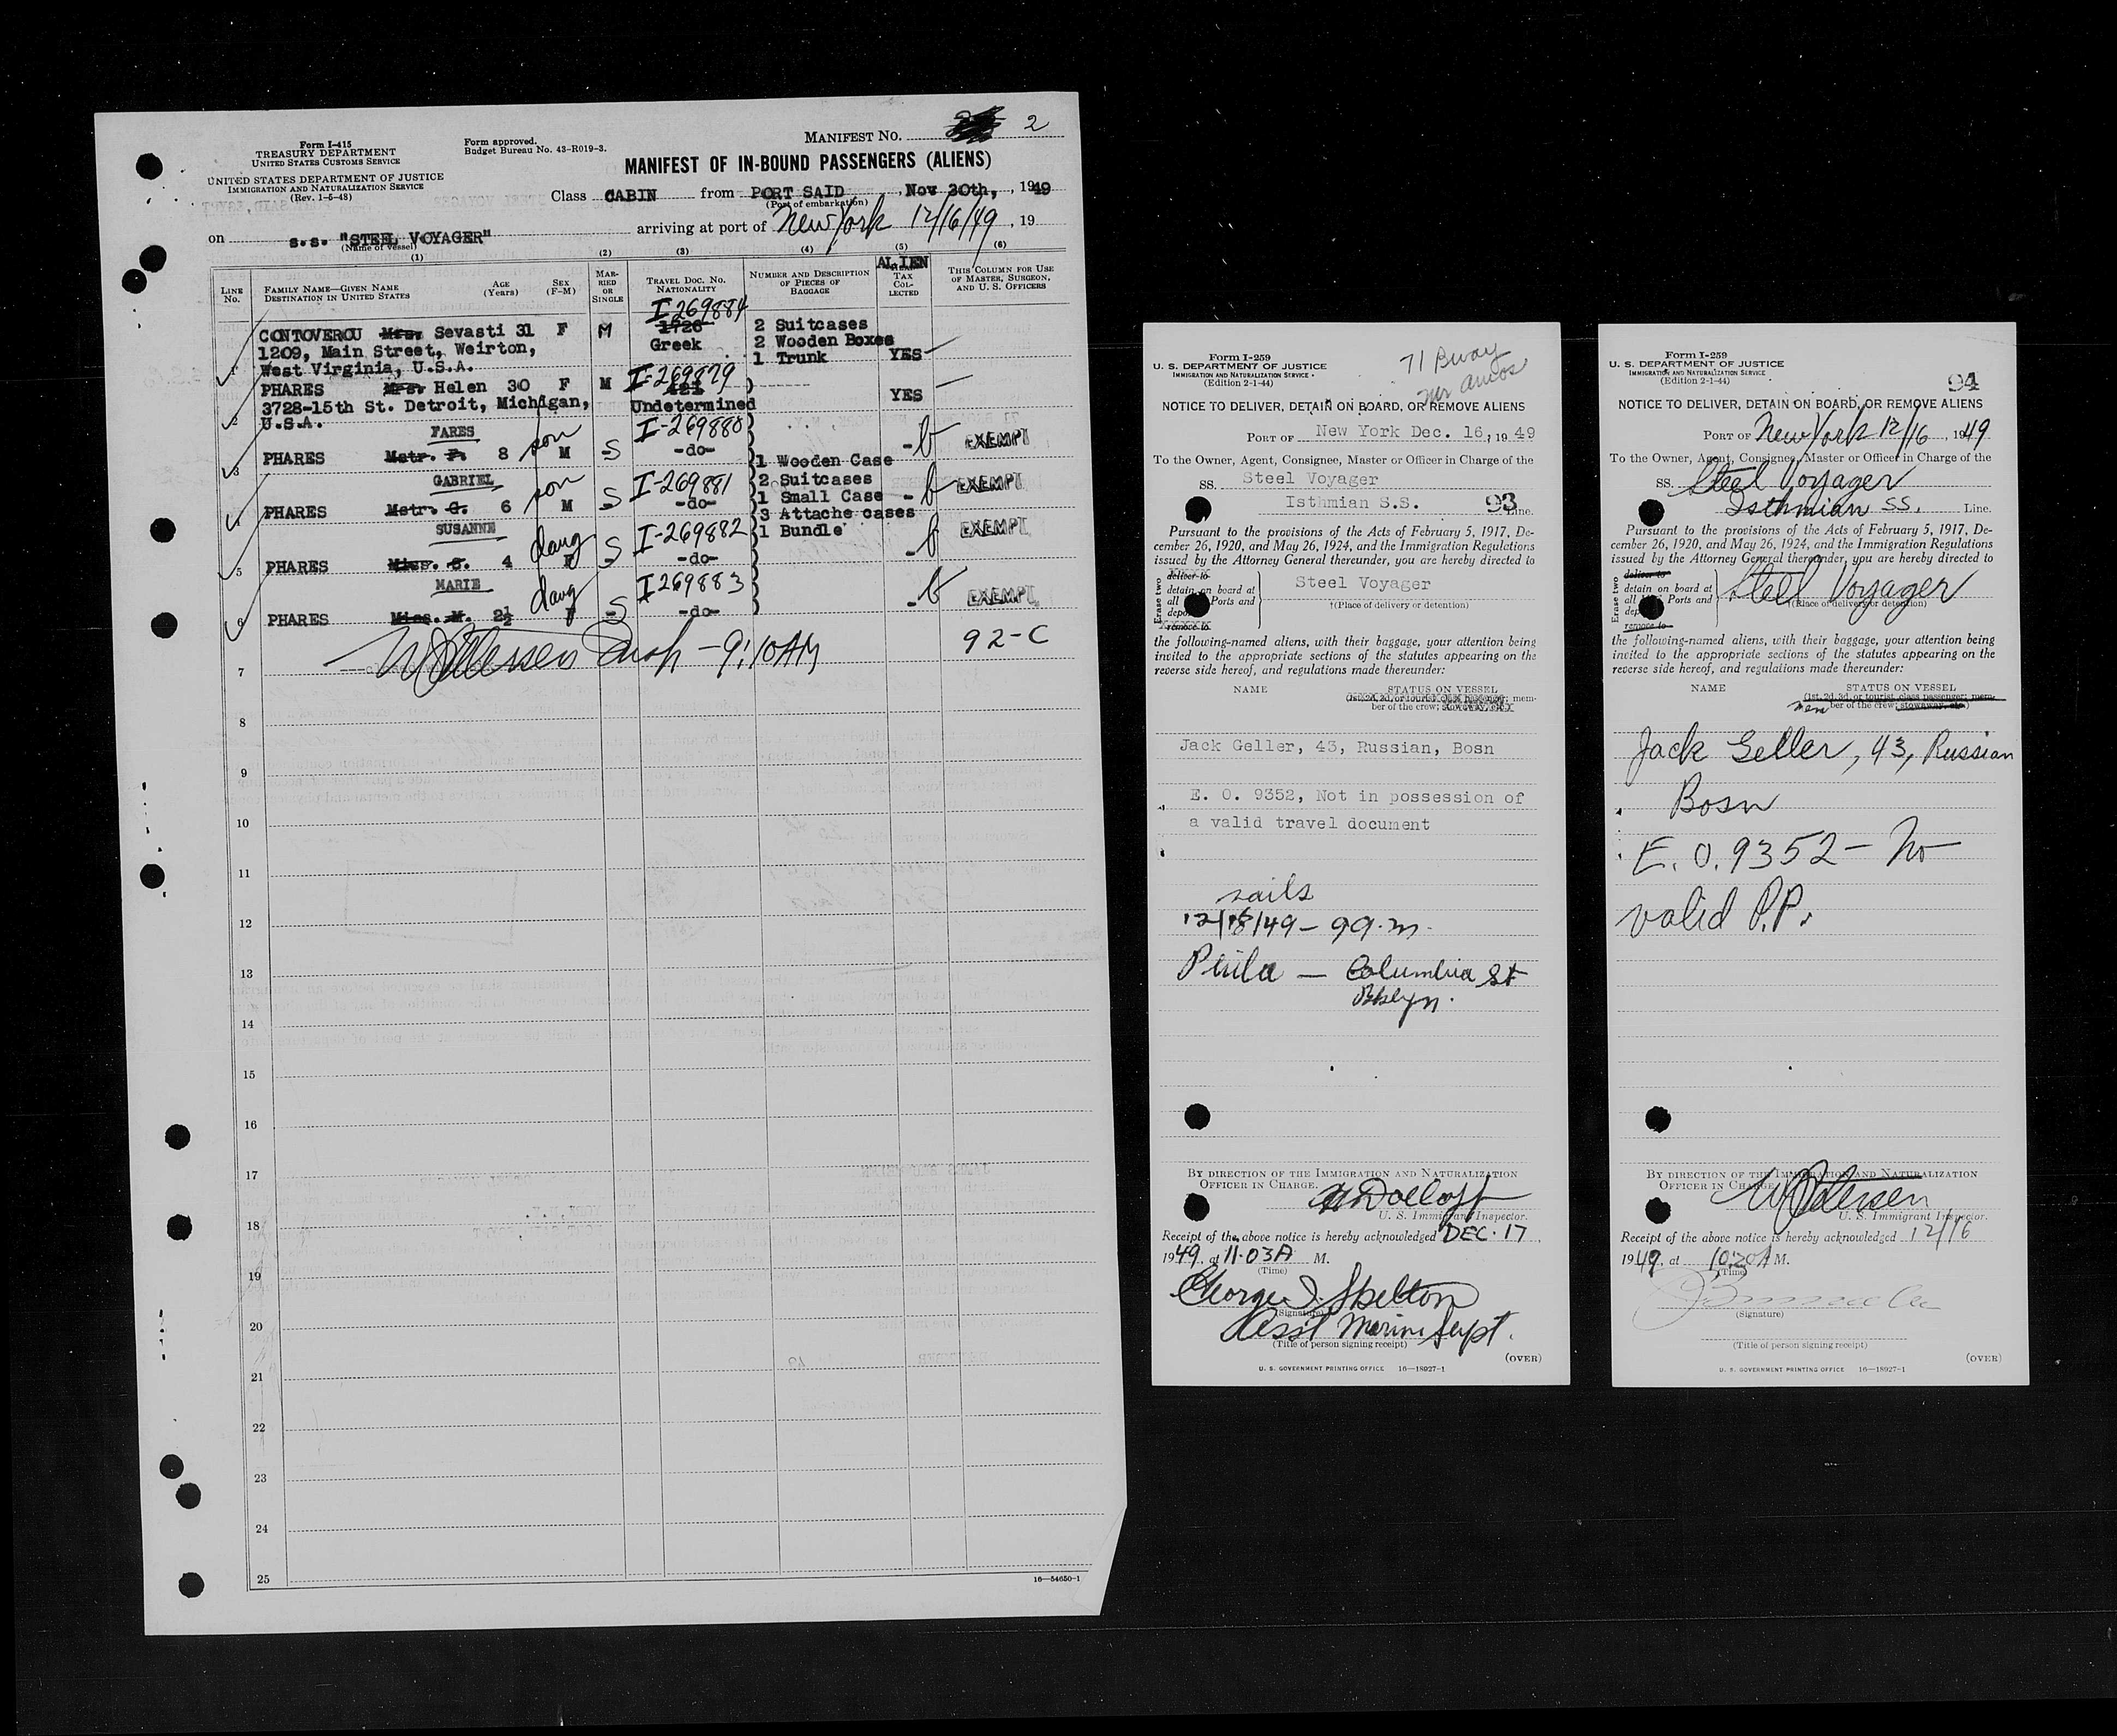 Form I-415
TREASURY DEPARTMENT
UNITED STATES CUSTOMS SERVICE
UNITED STATES DEPARTMENT OF JUSTICE
IMMIGRATION AND NATURALIZATION SERVICE
(Rev. 1-5-48)
Form approved.
Budget Bureau No. 43-R019-3.
MANIFEST NO. 2
MANIFEST OF IN-BOUND PASSENGERS (ALIENS)
Class CABIN from PORT SAID, Nov 30th, 1949
(Port of embarkation)
on s.s. "STEEL VOYAGER" arriving at port of New York 12/16/49, 19
(Name of vessel)
(1) (2) (3) (4) (5) (6)
LINE No.
FAMILY NAME—GIVEN NAME
DESTINATION IN UNITED STATES
AGE (Years)
SEX (F-M)
MARRIED OR SINGLE
TRAVEL DOC. NO.
NATIONALITY
NUMBER AND DESCRIPTION OF PIECES OF BAGGAGE
ALIEN
TAX COLLECTED
THIS COLUMN FOR USE OF MASTER, SURGEON, AND U. S. OFFICERS
I-269884
CONTOVEROU Mrs. Sevasti 31 F M 1726 2 Suitcases
1209, Main Street, Weirton, Greek 2 Wooden Boxes
1 West Virginia, U.S.A. 1 Trunk YES
I-269879
PHARES Mrs. Helen 30 F M 421
3728-15th St. Detroit, Michigan, Undetermined YES
2 U.S.A.
FARES son I-269880
3 PHARES Mstr. F. 8 M S -do- 1 Wooden Case EXEMPT
GABRIEL son I-269881 2 Suitcases
4 PHARES Mstr. G. 6 M S -do- 1 Small Case EXEMPT
3 Attache cases
SUSANNE daug I-269882 1 Bundle
5 PHARES Miss. S. 4 F S -do- EXEMPT
MARIE daug I269883
6 PHARES Miss. M. 2½ F S -do- EXEMPT
7 9:10AM 92-C
8
9
10
11
12
13
14
15
16
17
18
19
20
21
22
23
24
25
16—54650-1
Form I-259
U. S. DEPARTMENT OF JUSTICE
IMMIGRATION AND NATURALIZATION SERVICE
(Edition 2-1-44)
71 Bway
Mr Amos
NOTICE TO DELIVER, DETAIN ON BOARD, OR REMOVE ALIENS
PORT OF New York Dec. 16, 1949
To the Owner, Agent, Consignee, Master or Officer in Charge of the
SS. Steel Voyager
Isthmian S.S. 93 Line.
Pursuant to the provisions of the Acts of February 5, 1917, De-
cember 26, 1920, and May 26, 1924, and the Immigration Regulations
issued by the Attorney General thereunder, you are hereby directed to
Erase two
deliver to
detain on board at
all Ports and
remove to
Steel Voyager
(Place of delivery or detention)
the following-named aliens, with their baggage, your attention being
invited to the appropriate sections of the statutes appearing on the
reverse side hereof, and regulations made thereunder:
NAME STATUS ON VESSEL
(1st, 2d, 3d, or tourist class passenger; mem-
ber of the crew; stowaway, etc.)
Jack Geller, 43, Russian, Bosn
E. O. 9352, Not in possession of
a valid travel document
sails
12/18/49 –
Phila — Columbia St
Bklyn.
BY DIRECTION OF THE IMMIGRATION AND NATURALIZATION
OFFICER IN CHARGE.
U. S. Immigrant Inspector.
Receipt of the above notice is hereby acknowledged DEC. 17,
1949, at 11-03A M.
(Time)
George J. Skelton
(Signature)
Asst Marine Supt.
(Title of person signing receipt)
(OVER)
U. S. GOVERNMENT PRINTING OFFICE 16—18927-1
Form I-259
U. S. DEPARTMENT OF JUSTICE
IMMIGRATION AND NATURALIZATION SERVICE
(Edition 2-1-44)
94
NOTICE TO DELIVER, DETAIN ON BOARD, OR REMOVE ALIENS
PORT OF New York 12/16, 1949
To the Owner, Agent, Consignee, Master or Officer in Charge of the
SS. Steel Voyager
Isthmian SS. Line.
Pursuant to the provisions of the Acts of February 5, 1917, De-
cember 26, 1920, and May 26, 1924, and the Immigration Regulations
issued by the Attorney General thereunder, you are hereby directed to
Erase two
deliver to
detain on board at
all Ports and
remove to
Steel Voyager
(Place of delivery or detention)
the following-named aliens, with their baggage, your attention being
invited to the appropriate sections of the statutes appearing on the
reverse side hereof, and regulations made thereunder:
NAME STATUS ON VESSEL
(1st, 2d, 3d, or tourist class passenger; mem-
mem ber of the crew; stowaway, etc.)
Jack Geller, 43, Russian
Bosn
E. O. 9352 – No
valid P.P.
BY DIRECTION OF THE IMMIGRATION AND NATURALIZATION
OFFICER IN CHARGE.
U. S. Immigrant Inspector.
Receipt of the above notice is hereby acknowledged 12/16
1949, at 10:20A M.
(Time)
(Signature)
(Title of person signing receipt)
(OVER)
U. S. GOVERNMENT PRINTING OFFICE 16—18927-1